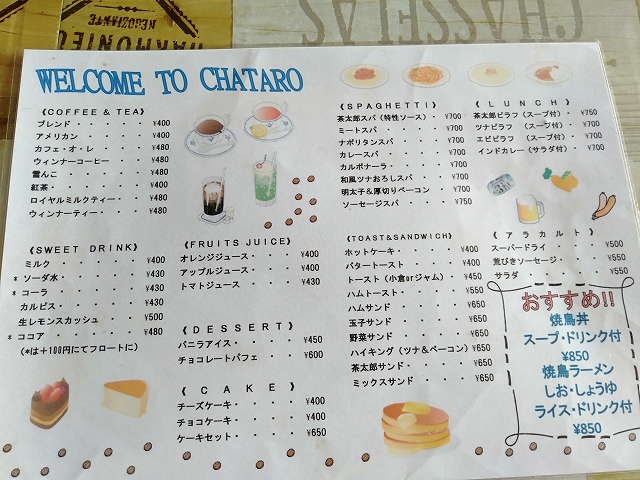 CHASSELAS
HARMONIEU
NEGOZIANTE
WELCOME TO CHATARO
《COFFEE & TEA》
ブレンド・・・・・¥400
アメリカン・・・・¥400
カフェ・オ・レ・・・¥480
ウィンナーコーヒー・・¥480
雪んこ・・・・・・¥480
紅茶・・・・・・・¥400
ロイヤルミルクティー・・¥480
ウィンナーティー・・・¥480
《SWEET DRINK》
ミルク・・・・・・¥400
*ソーダ水・・・・・¥430
*コーラ・・・・・・¥430
カルピス・・・・・¥430
生レモンスカッシュ ¥500
*ココア・・・・・・¥480
(*は+100円にてフロートに)
《FRUITS JUICE》
オレンジジュース・・・・¥400
アップルジュース・・・・¥400
トマトジュース・・・・¥430
《DESSERT》
バニラアイス・・・・・¥450
チョコレートパフェ・・・¥600
《CAKE》
チーズケーキ・・・・¥400
チョコケーキ・・・・¥400
ケーキセット・・・・¥650
《SPAGHETTI》
茶太郎スパ(特性ソース)・¥700
ミートスパ・・・・・¥700
ナポリタンスパ・・・・¥700
カレースパ・・・・・¥700
カルボナーラ・・・・¥700
和風ツナおろしスパ・・¥700
明太子&厚切りベーコン・¥700
ソーセージスパ・・・・¥750
《TOAST&SANDWICH》
ホットケーキ・・・・¥400
バタートースト・・・¥400
トースト(小倉orジャム)・¥450
ハムトースト・・・・¥550
ハムサンド・・・・・¥650
玉子サンド・・・・・¥650
野菜サンド・・・・・¥650
ハイキング(ツナ&ベーコン)¥650
茶太郎サンド・・・・¥650
ミックスサンド・・・¥650
《LUNCH》
茶太郎ピラフ(スープ付)・¥750
ツナピラフ (スープ付)・・¥700
エビピラフ (スープ付)・・¥700
インドカレー(サラダ付)・¥700
《アラカルト》
スーパードライ・・・・¥500
荒びきソーセージ・・・¥550
サラダ・・・・・・¥550
おすすめ!!
焼鳥丼
スープ・ドリンク付
¥850
焼鳥ラーメン
しお・しょうゆ
ライス・ドリンク付
¥850